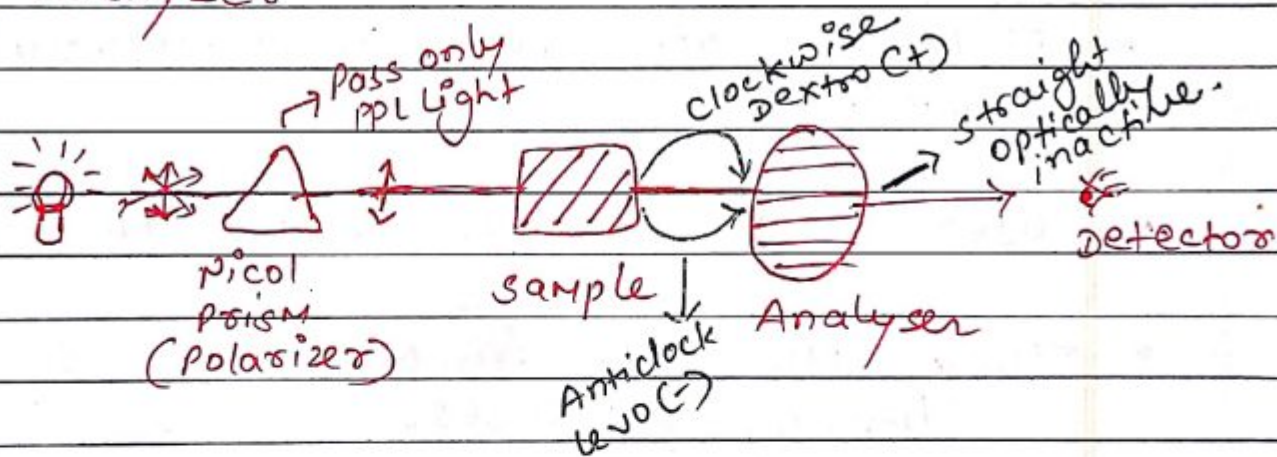 Pass only
PPL Light
clockwise
Dextro (+)
straight
optically
inactive.
Nicol
Prism
(Polarizer)
Sample
Analyser
Detector
Anticlock
Levo (-)